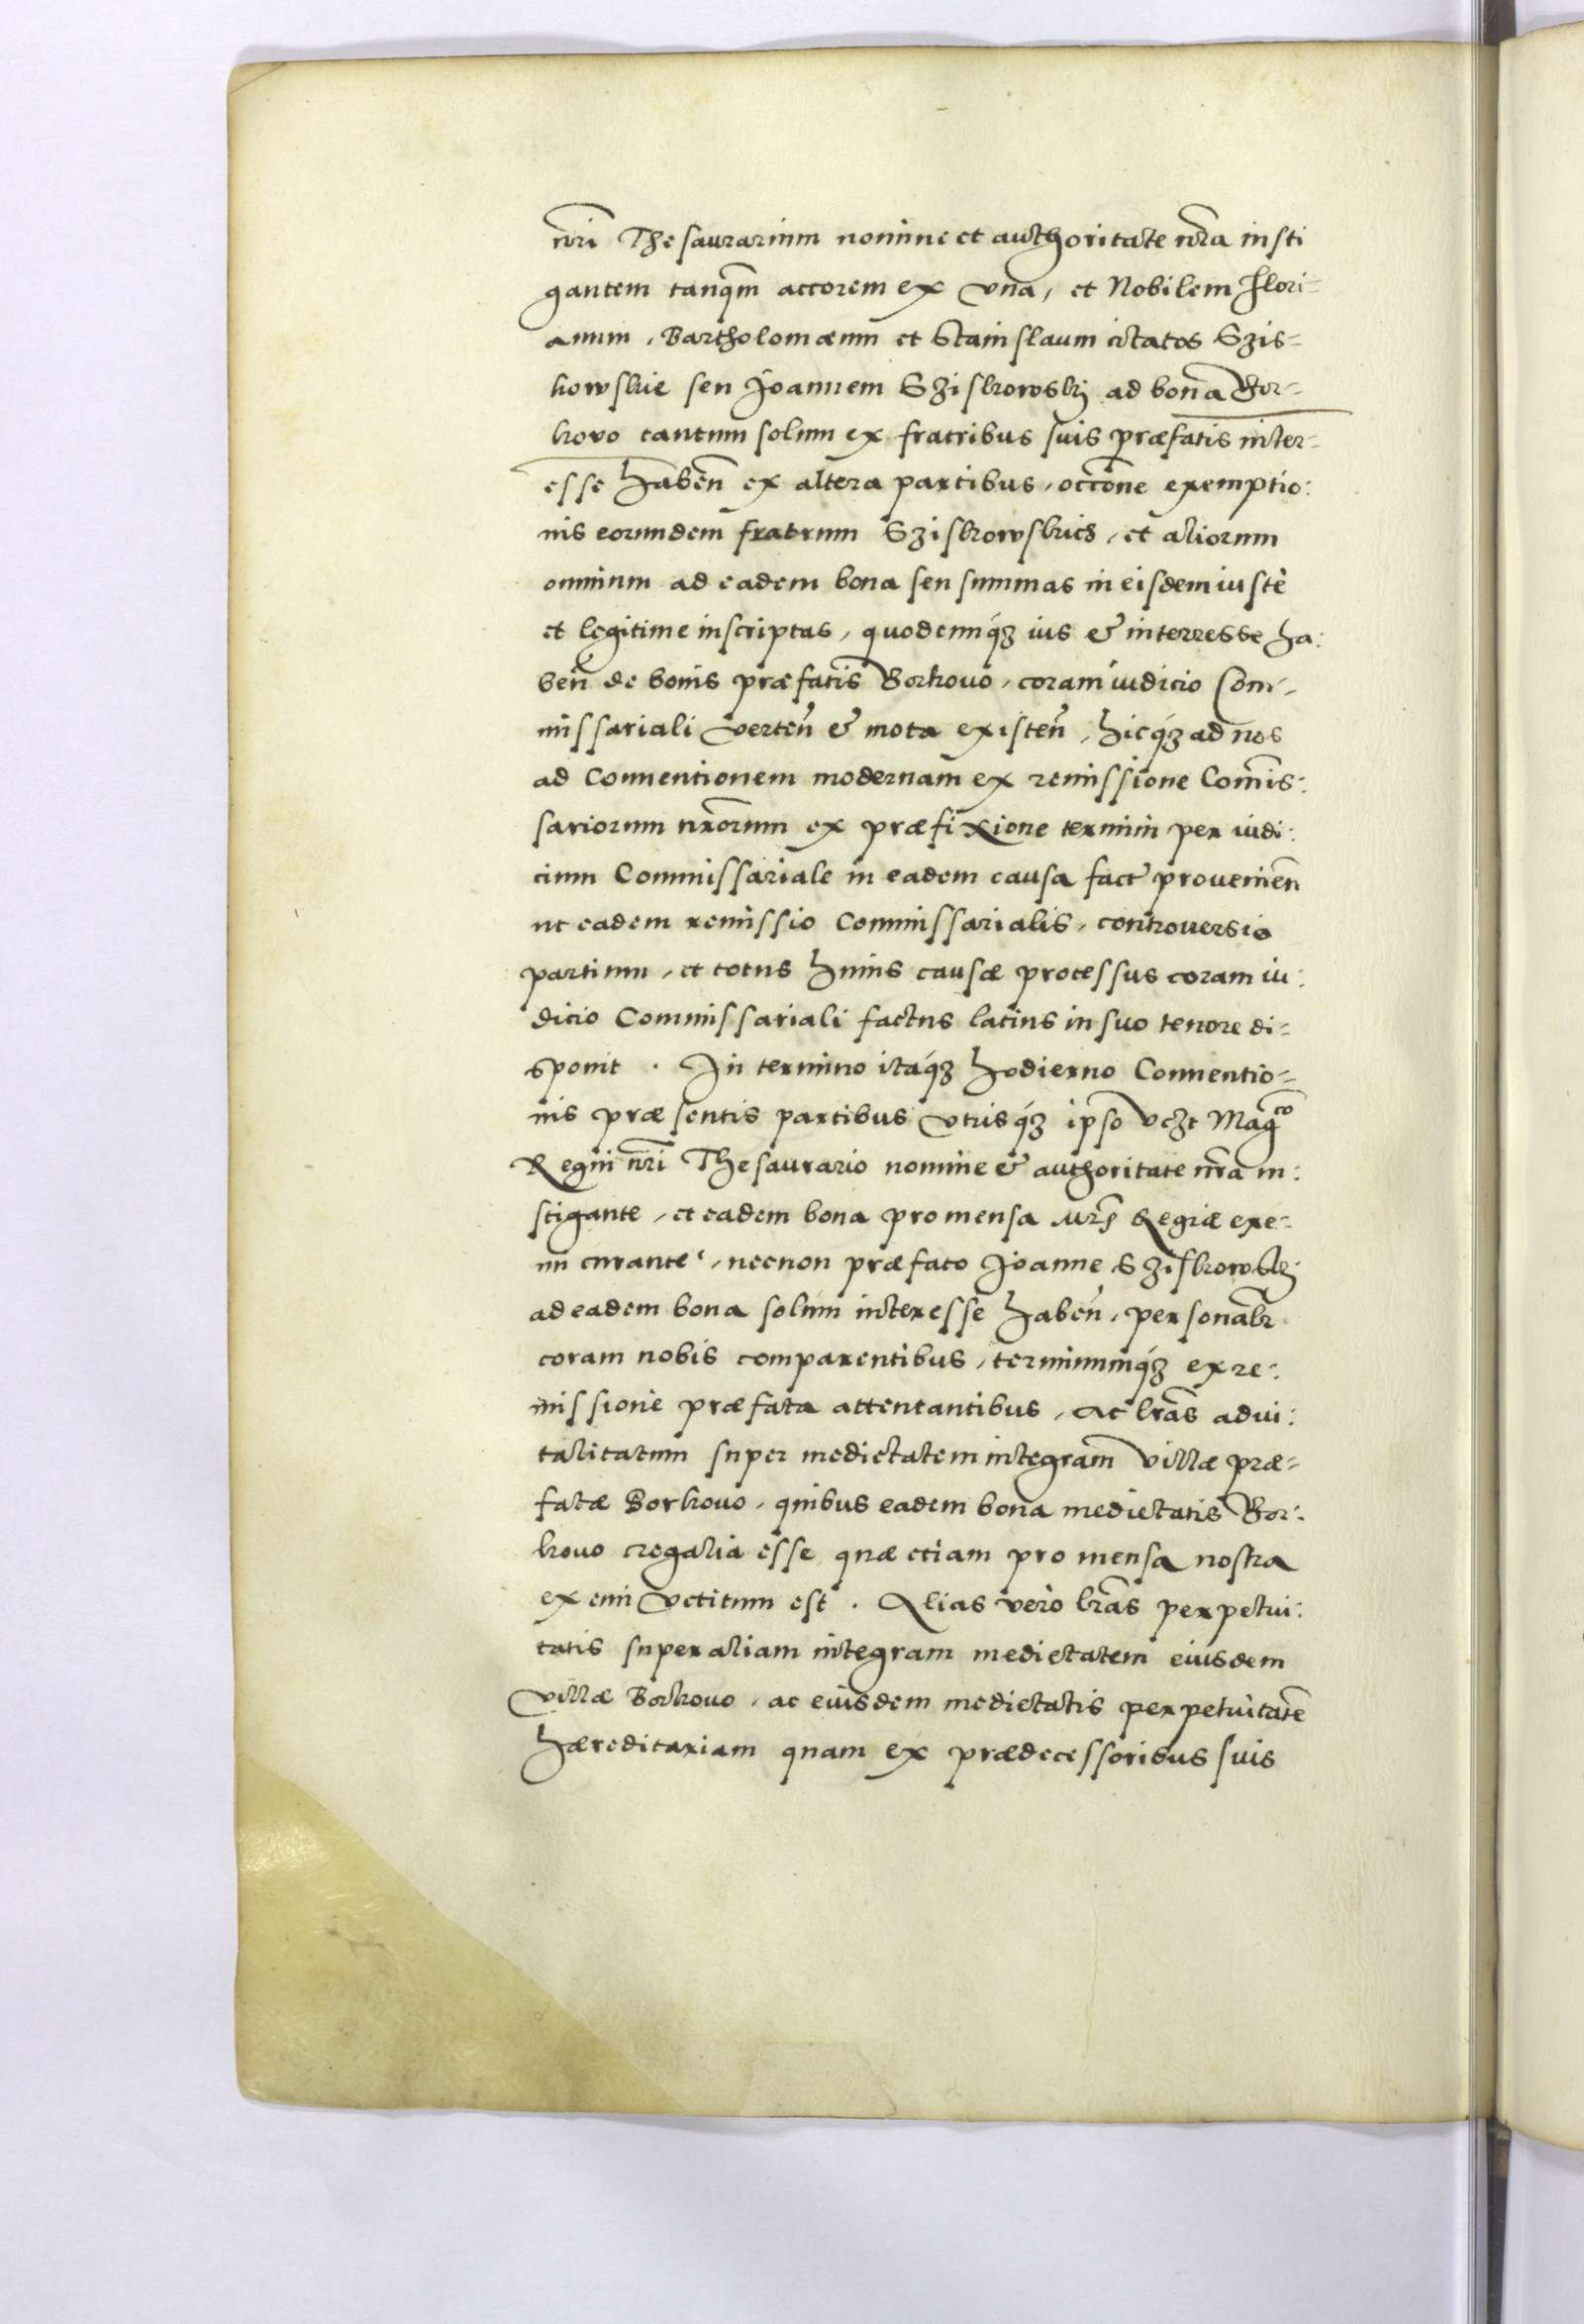 nr̃i Thesaurarium nomine et authoritate nr̃a insti
gantem tanq̃m actorem ex vna, et Nobilem Flori-
anum, Bartholomæum et Stanislaum citatos Szis-
kowskie seu Joannem Sziskowskÿ ad bona Bor-
kovo tantum solum ex fratribus suis præfatis inter-
esse habeñ ex altera partibus, occ̃one exemptio:
nis eorundem fratrum Sziskowskich, et aliorum
omnium ad eadem bona seu summas in eisdem iustè
et legitime inscriptas, quodcunq́ꝫ ius & interresse ha:
beñ de bonis præfatis Borkouo, coram iudicio Com-
missariali verteñ & mota existeñ, hicq́ꝫ ad nos
ad Conuentionem modernam ex remissione Com̃is:
sariorum nr̃orum ex præfixione termini per iudi:
cium Commissariale in eadem causa fact̃ prouenieñ
ut eadem remissio Commissarialis, controuersia
partium, et totus huius causæ processus coram iu:
dicio Commissariali factus latius in suo tenore di-
sponit . In termino itaq́ꝫ hodierno Conuentio-
nis præsentis partibus vtrisq́ꝫ ipso vczt Mag̃co
Regni nr̃i Thesaurario nomine & authoritate nr̃a in:
stigante, et eadem bona pro mensa Mr̃ę Regiæ exe-
mi curante, necnon præfato Joanne Sziskowskÿ
ad eadem bona solum interesse habeñ, personalr̃
coram nobis comparentibus, terminumq́ꝫ ex re:
missione præfata attentantibus, Ac lr̃as aduì:
talitatum super medietatem integram villæ præ-
fatæ Borkouo, quibus eadem bona medietatis Bor:
kouo regalia esse quæ etiam pro mensa nostra
exemi vetitum est . Alias verò lr̃as perpetui:
tatis super aliam integram medietatem eiusdem
villæ Borkouo, ac eiusdem medietatis perpetuitatẽ
hæreditariam quam ex prædecessoribus suis